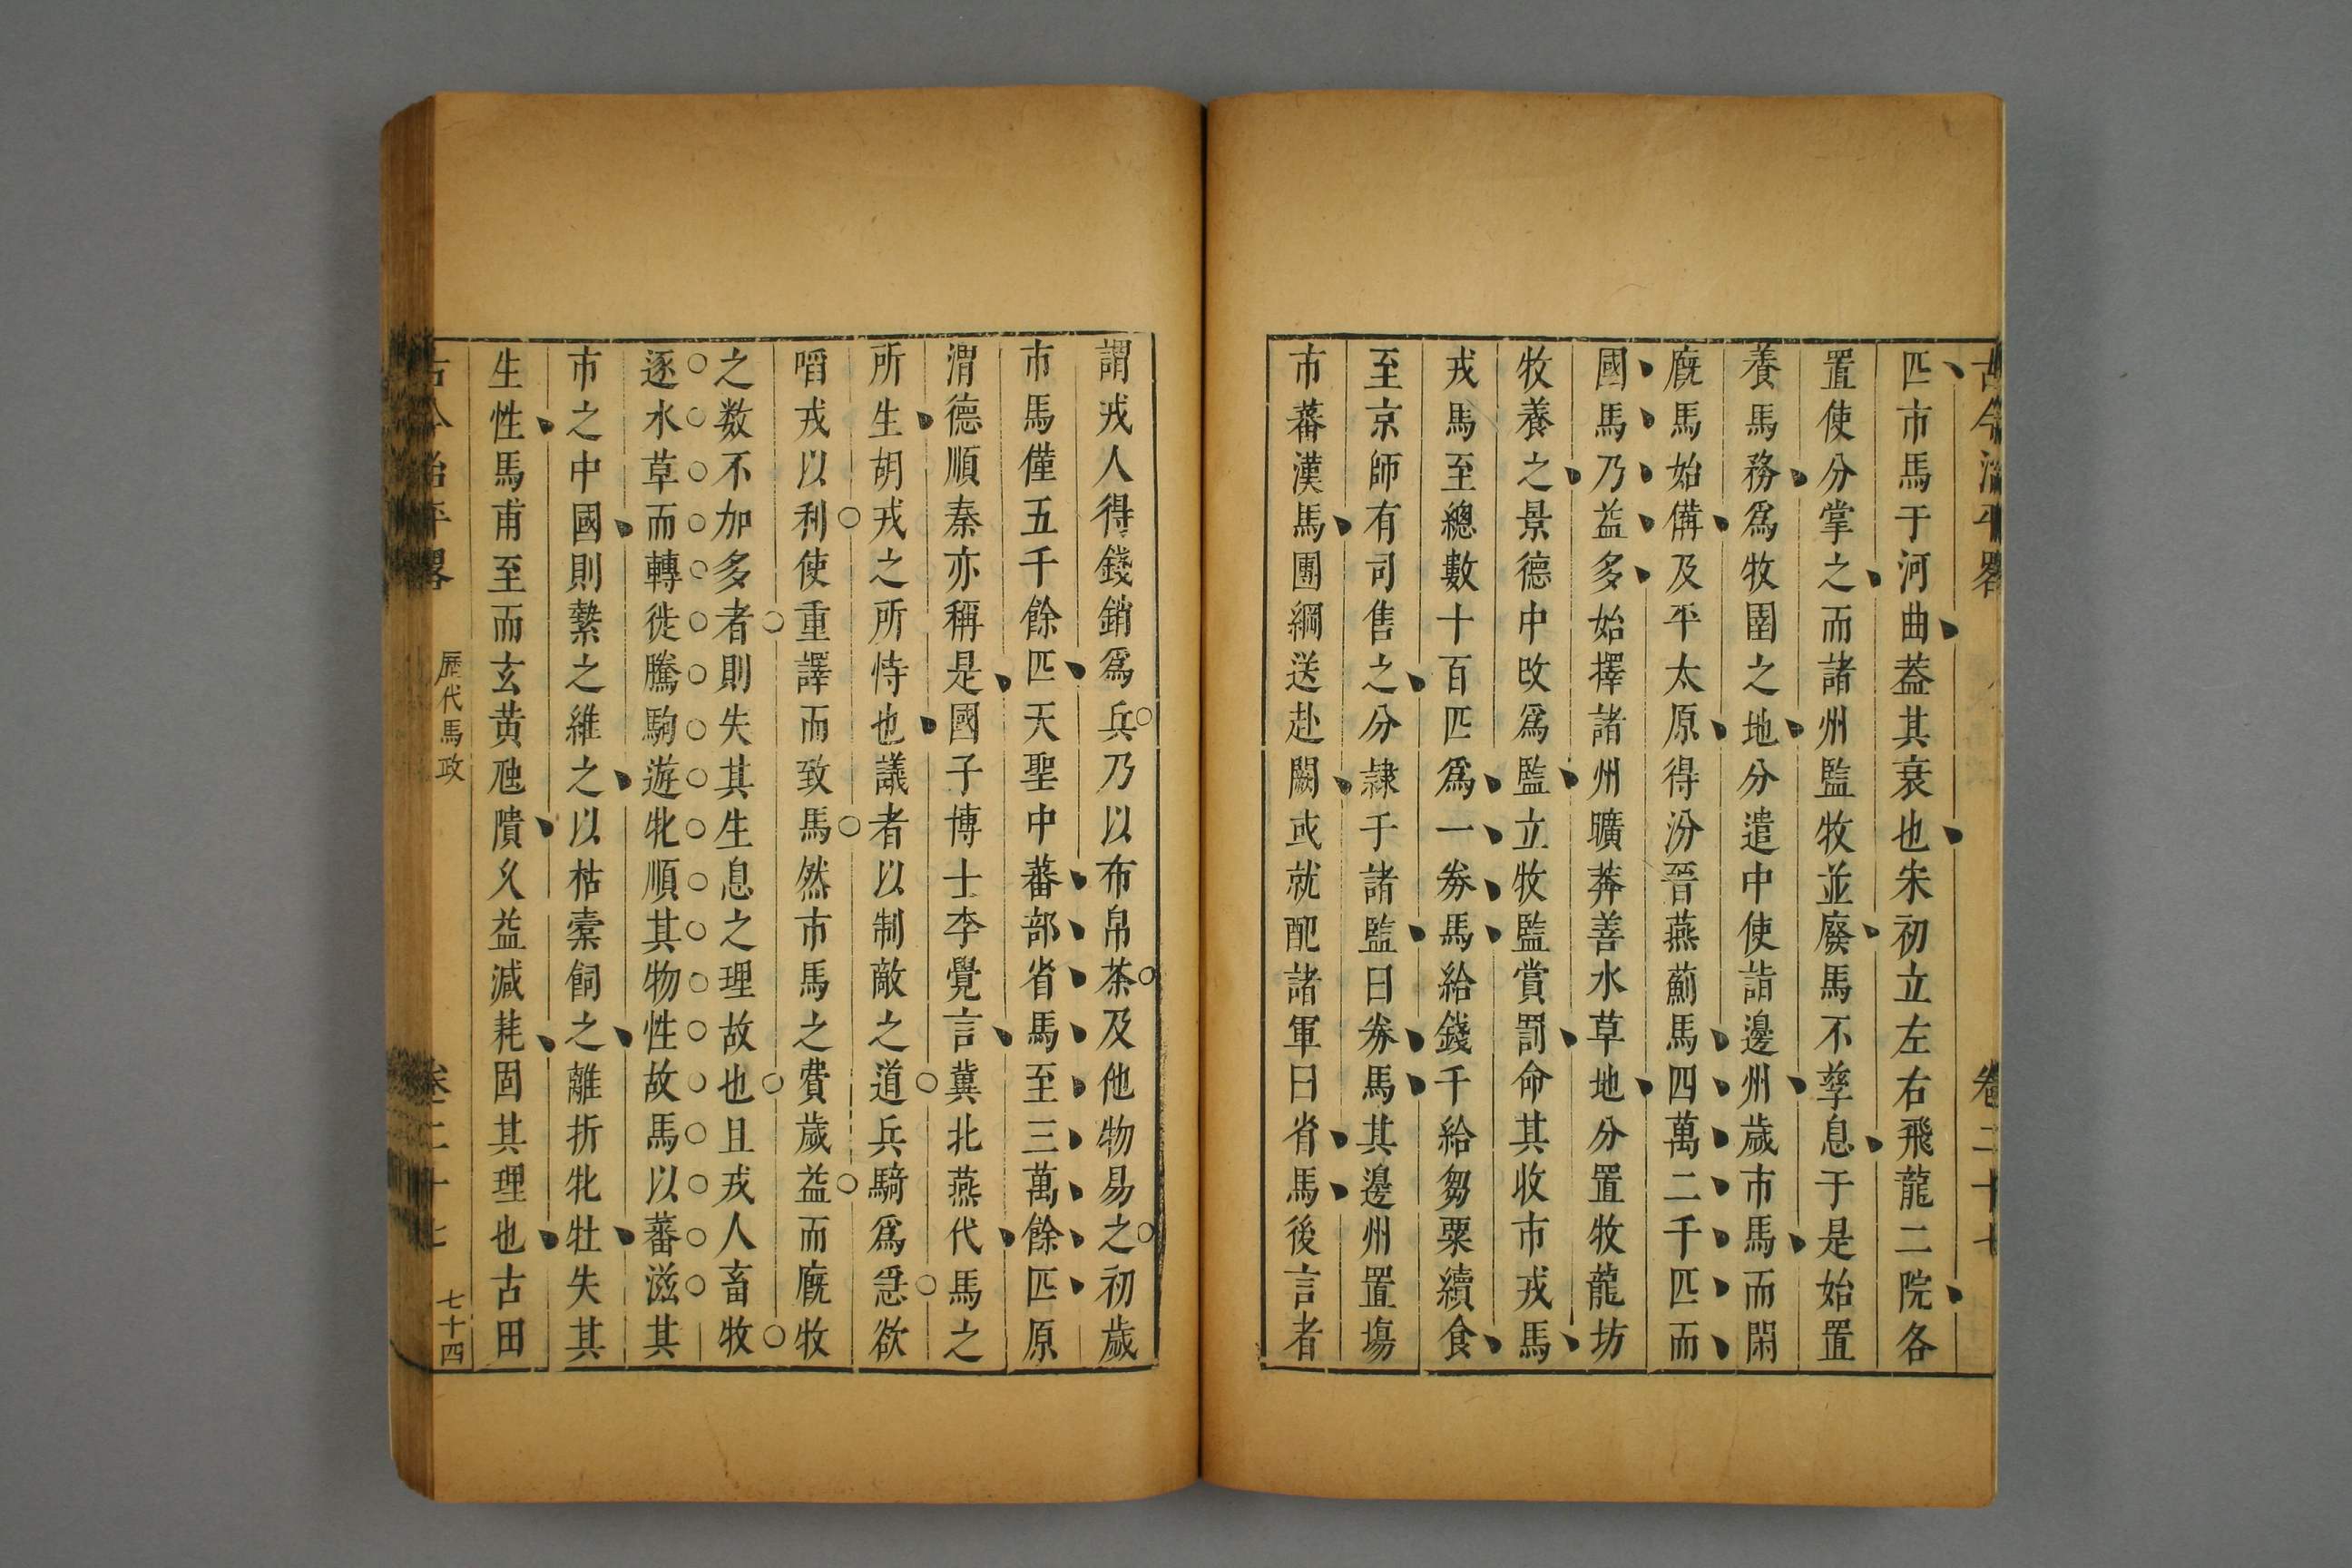 古今治平畧
卷二十七
匹市馬于河曲葢其衰也宋初立左右飛龍二院各
置使分掌之而諸州監牧並廢馬不孳息于是始置
養馬務爲牧圉之地分遣中使詣邊州歲市馬而閑
廐馬始備及平太原得汾晉燕薊馬四萬二千匹而
國馬乃益多始擇諸州曠莽善水草地分置牧龍坊
牧養之景德中改爲監立牧監賞罰命其收市戎馬
戎馬至總數十百匹爲一券馬給錢千給芻粟續食
至京師有司售之分隷于諸監曰券馬其邊州置塲
市蕃漢馬團綱送赴闕或就配諸軍曰省馬後言者
謂戎人得錢銷爲兵乃以布帛茶及他物易之初歲
市馬僅五千餘匹天聖中蕃部省馬至三萬餘匹原
渭德順秦亦稱是國子博士李覺言冀北燕代馬之
所生胡戎之所恃也議者以制敵之道兵騎爲急欲
啗戎以利使重譯而致馬然市馬之費歲益而廐牧
之数不加多者則失其生息之理故也且戎人畜牧
逐水草而轉徙騰駒遊牝順其物性故馬以蕃滋其
市之中國則縶之維之以枯槀飼之離折牝牡失其
生性馬甫至而玄黄虺隤乆益减耗固其理也古田
古今治平畧
歷代馬政
卷二十七
七十四